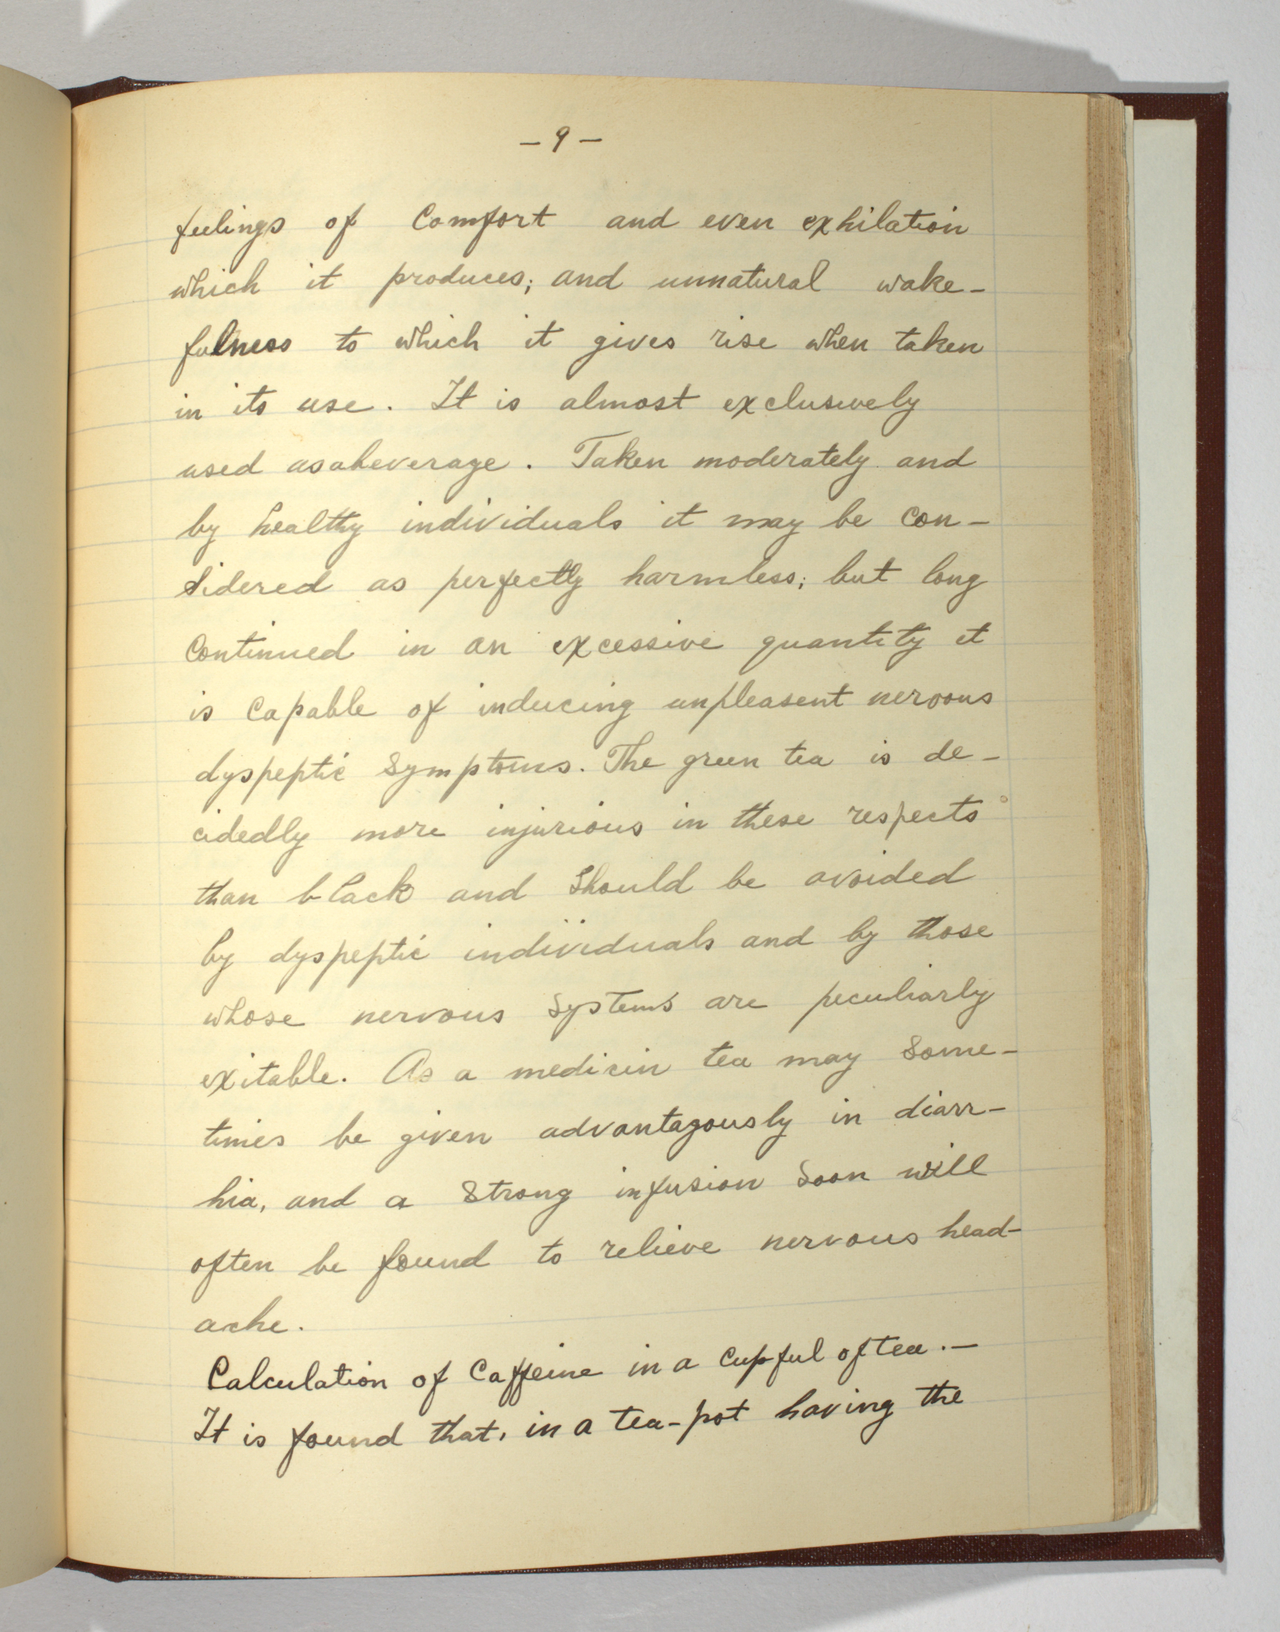 – 9 –
feelings of Comfort and even exhilation
which it produces; and unnatural wake-
fulness to which it gives rise when taken
in its use. It is almost exclusively
used asabeverage. Taken moderately and
by healthy individuals it may be con-
sidered as perfectly harmless; but long
Continued in an excessive quantity it
is Capable of inducing unpleasent nervous
dyspeptic Symptoms. The green tea is de-
cidedly more injurious in these respects
than black and Should be avoided
by dyspeptic individuals and by those
whose nervous Systems are peculiarly
exitable. As a medicin tea may Some-
times be given advantagously in diarr-
hia, and a Strong infusion Soon will
often be found to relieve nervous head-
ache.
Calculation of Caffeine in a Cupful of tea.—
It is found that, in a tea-pot having the